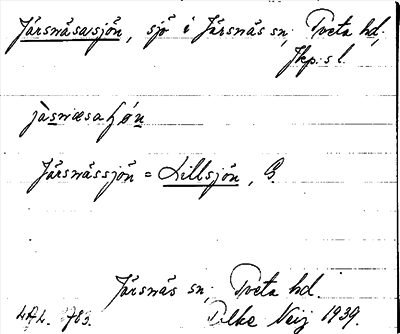 Järsnäsasjön, sjö i Järsnäs sn, Tveta hd,
Jkp:s l.
jàsnæsaʃǿn
Järsnässjön = Lillsjön, G.
Järsnäs sn, Tveta hd.
1939.